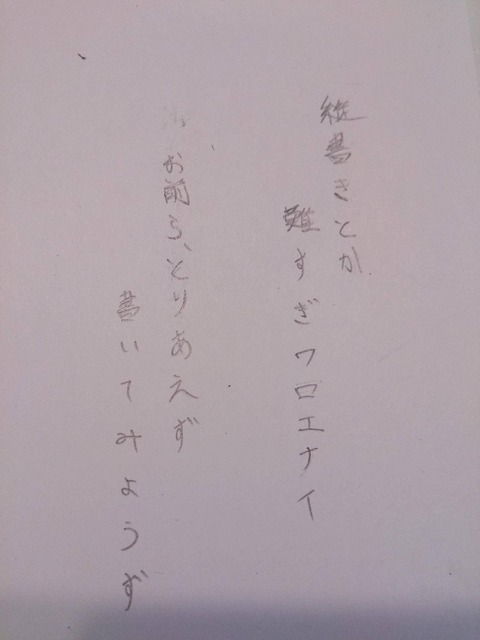 縦書きとか
難すぎワロエナイ
お前ら、とりあえず
書いてみようず